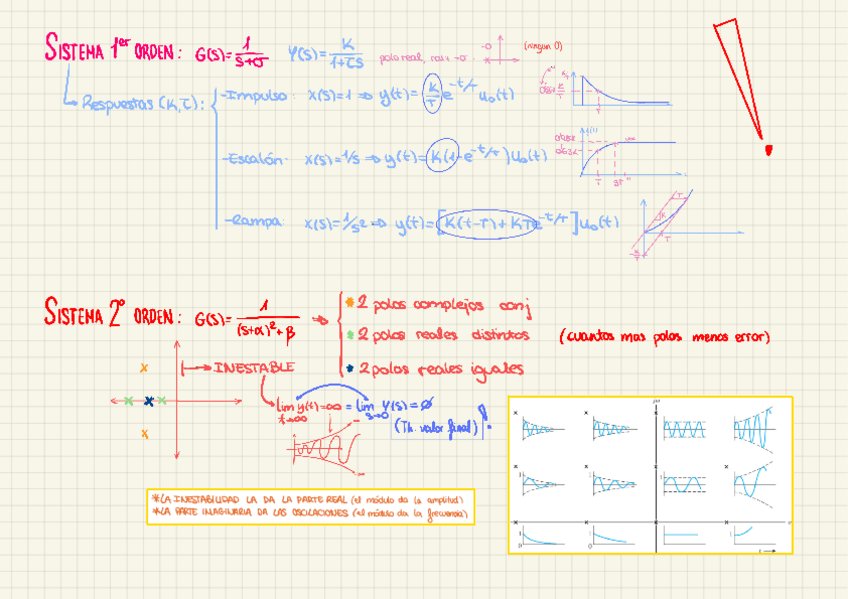 SISTEMA 1er ORDEN: G(s)= 1/(s+σ) Y(s)= K/(1+τs) polo real, raiz -σ (ningun 0)
Respuestas (K,τ):
-Impulso: x(s)=1 ⇒ y(t)= K/τ e^(-t/τ) u₀(t)
-Escalón: x(s)=1/s ⇒ y(t)= K(1-e^(-t/τ)) u₀(t)
-Rampa: x(s)=1/s² ⇒ y(t)= [K(t-τ)+Kτe^(-t/τ)] u₀(t)
SISTEMA 2º ORDEN: G(s)= 1/((s+α)²+β) ⇒
* 2 polos complejos conj
* 2 polos reales distintos
* 2 polos reales iguales
(cuantos mas polos menos error)
INESTABLE
lim y(t)=∞ = lim Y(s)=∅
t→∞ s→0
(Th. valor final)!
*LA INESTABILIDAD LA DA LA PARTE REAL (el módulo da la amplitud)
*LA PARTE IMAGINARIA DA LAS OSCILACIONES (el módulo da la frecuencia)